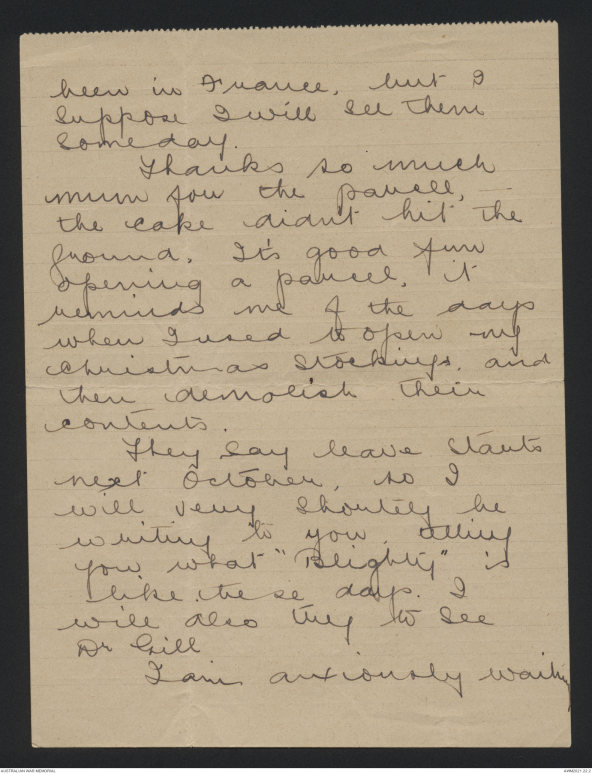 been in France, but I
suppose I will see them
someday.
Thanks so much
mum for the parcell,
the cake didn't hit the
ground. It's good fun
opening a parcel, it
reminds me of the days
when I used to open my
Christmas Stockings, and
then demolish their
contents.
They say leave starts
next October, so I
will very shortly be
writing to you telling
you what "Blighty" is
like these days. I
will also try to see
Dr Gill
I am anxiously waiting
AUSTRALIAN WAR MEMORIAL